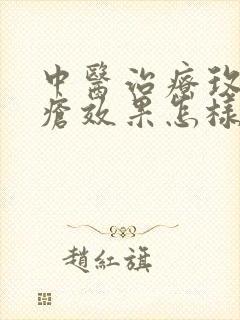 中醫治療玫
瘡效果怎樣
趙紅旗